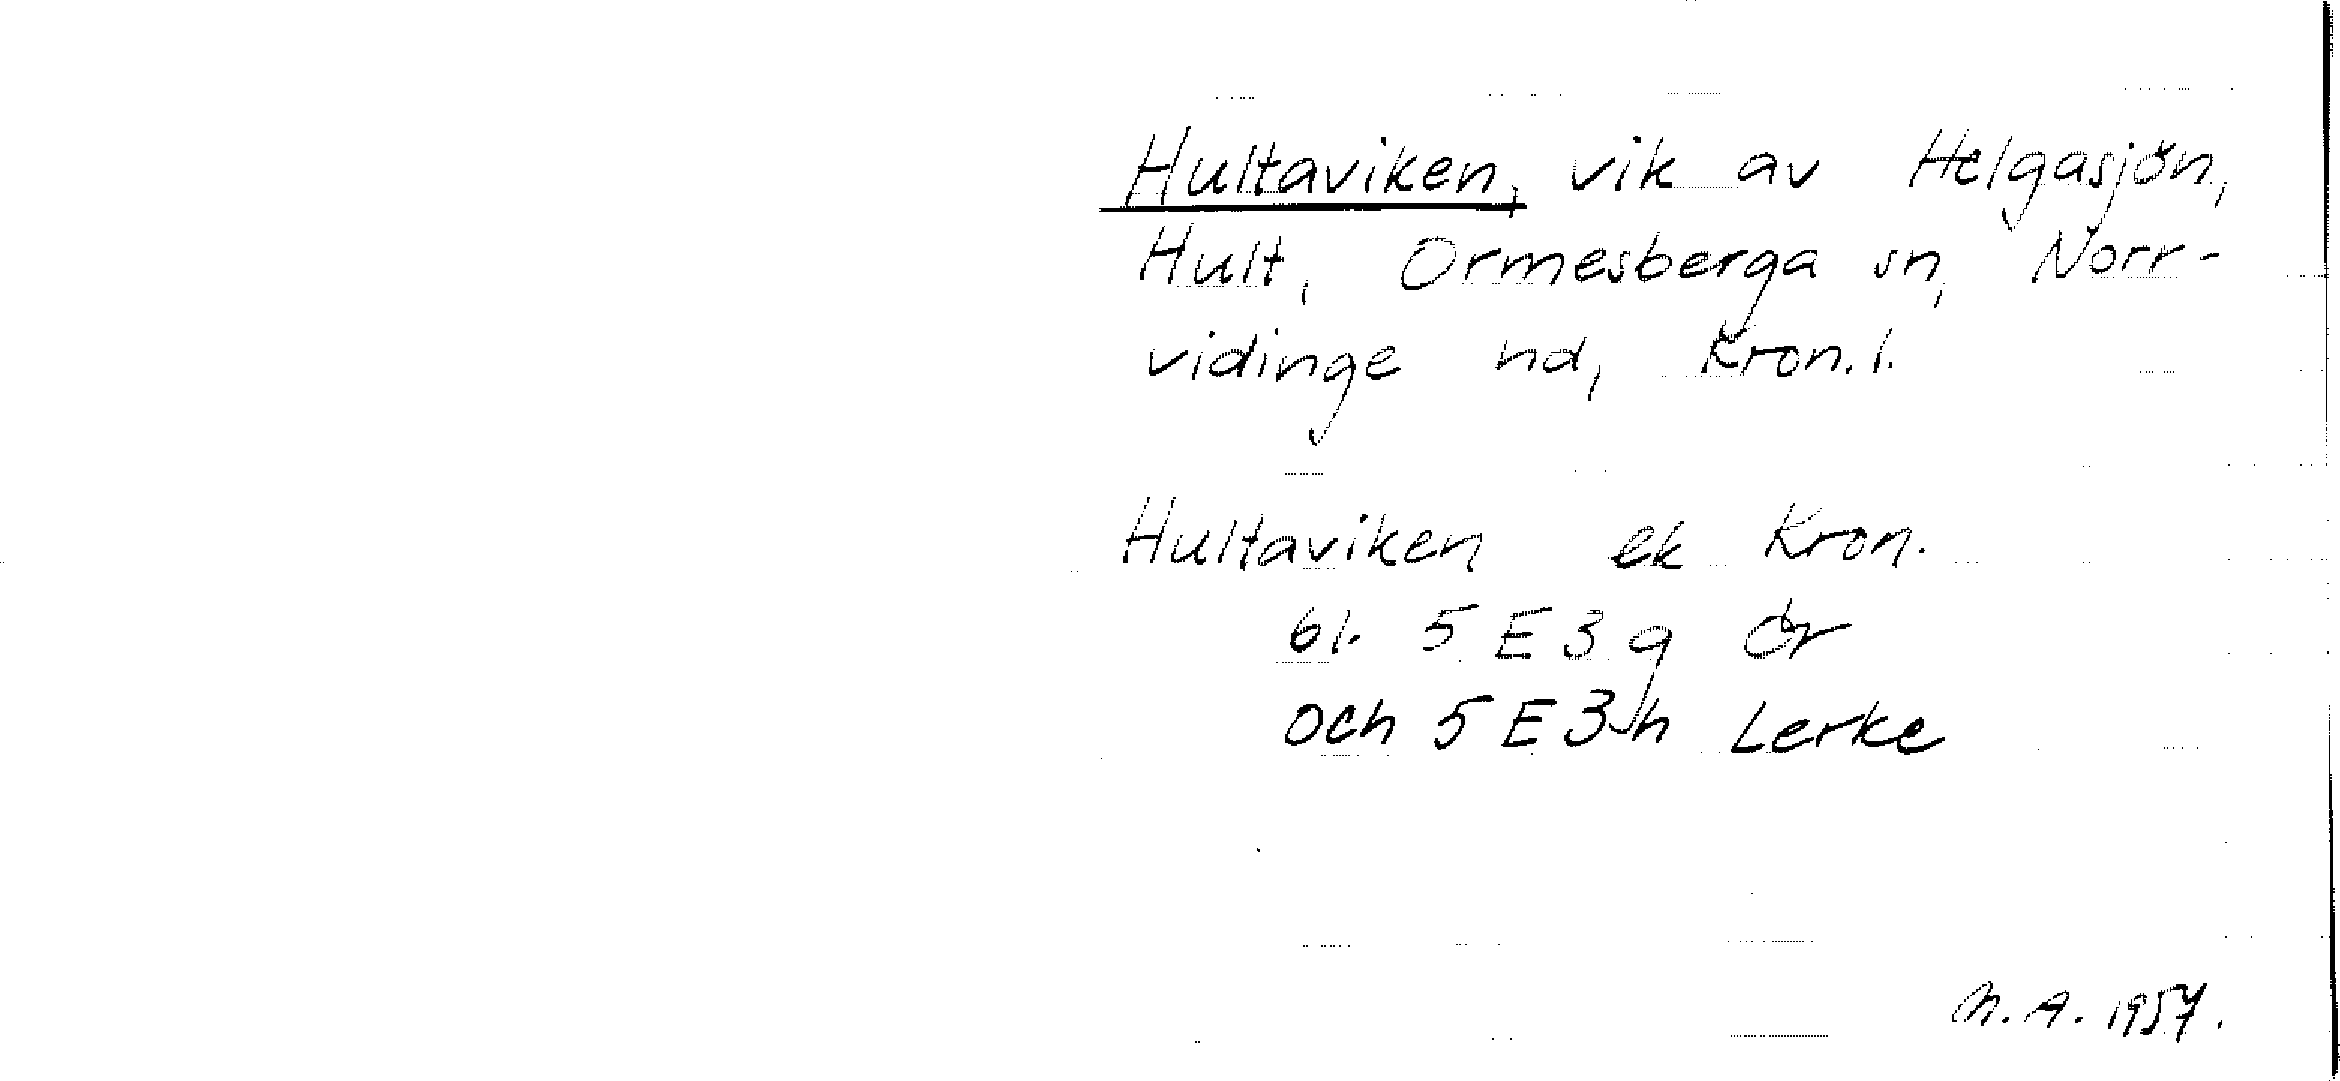 Hultaviken, vik av Helgasjön,
Hult, Ormesberga sn, Norr-
vidinge hd, Kron.l.
Hultaviken ek Kron.
bl. 5 E 3 g Ör
och 5 E 3 h Lerke
M.A. 1957.